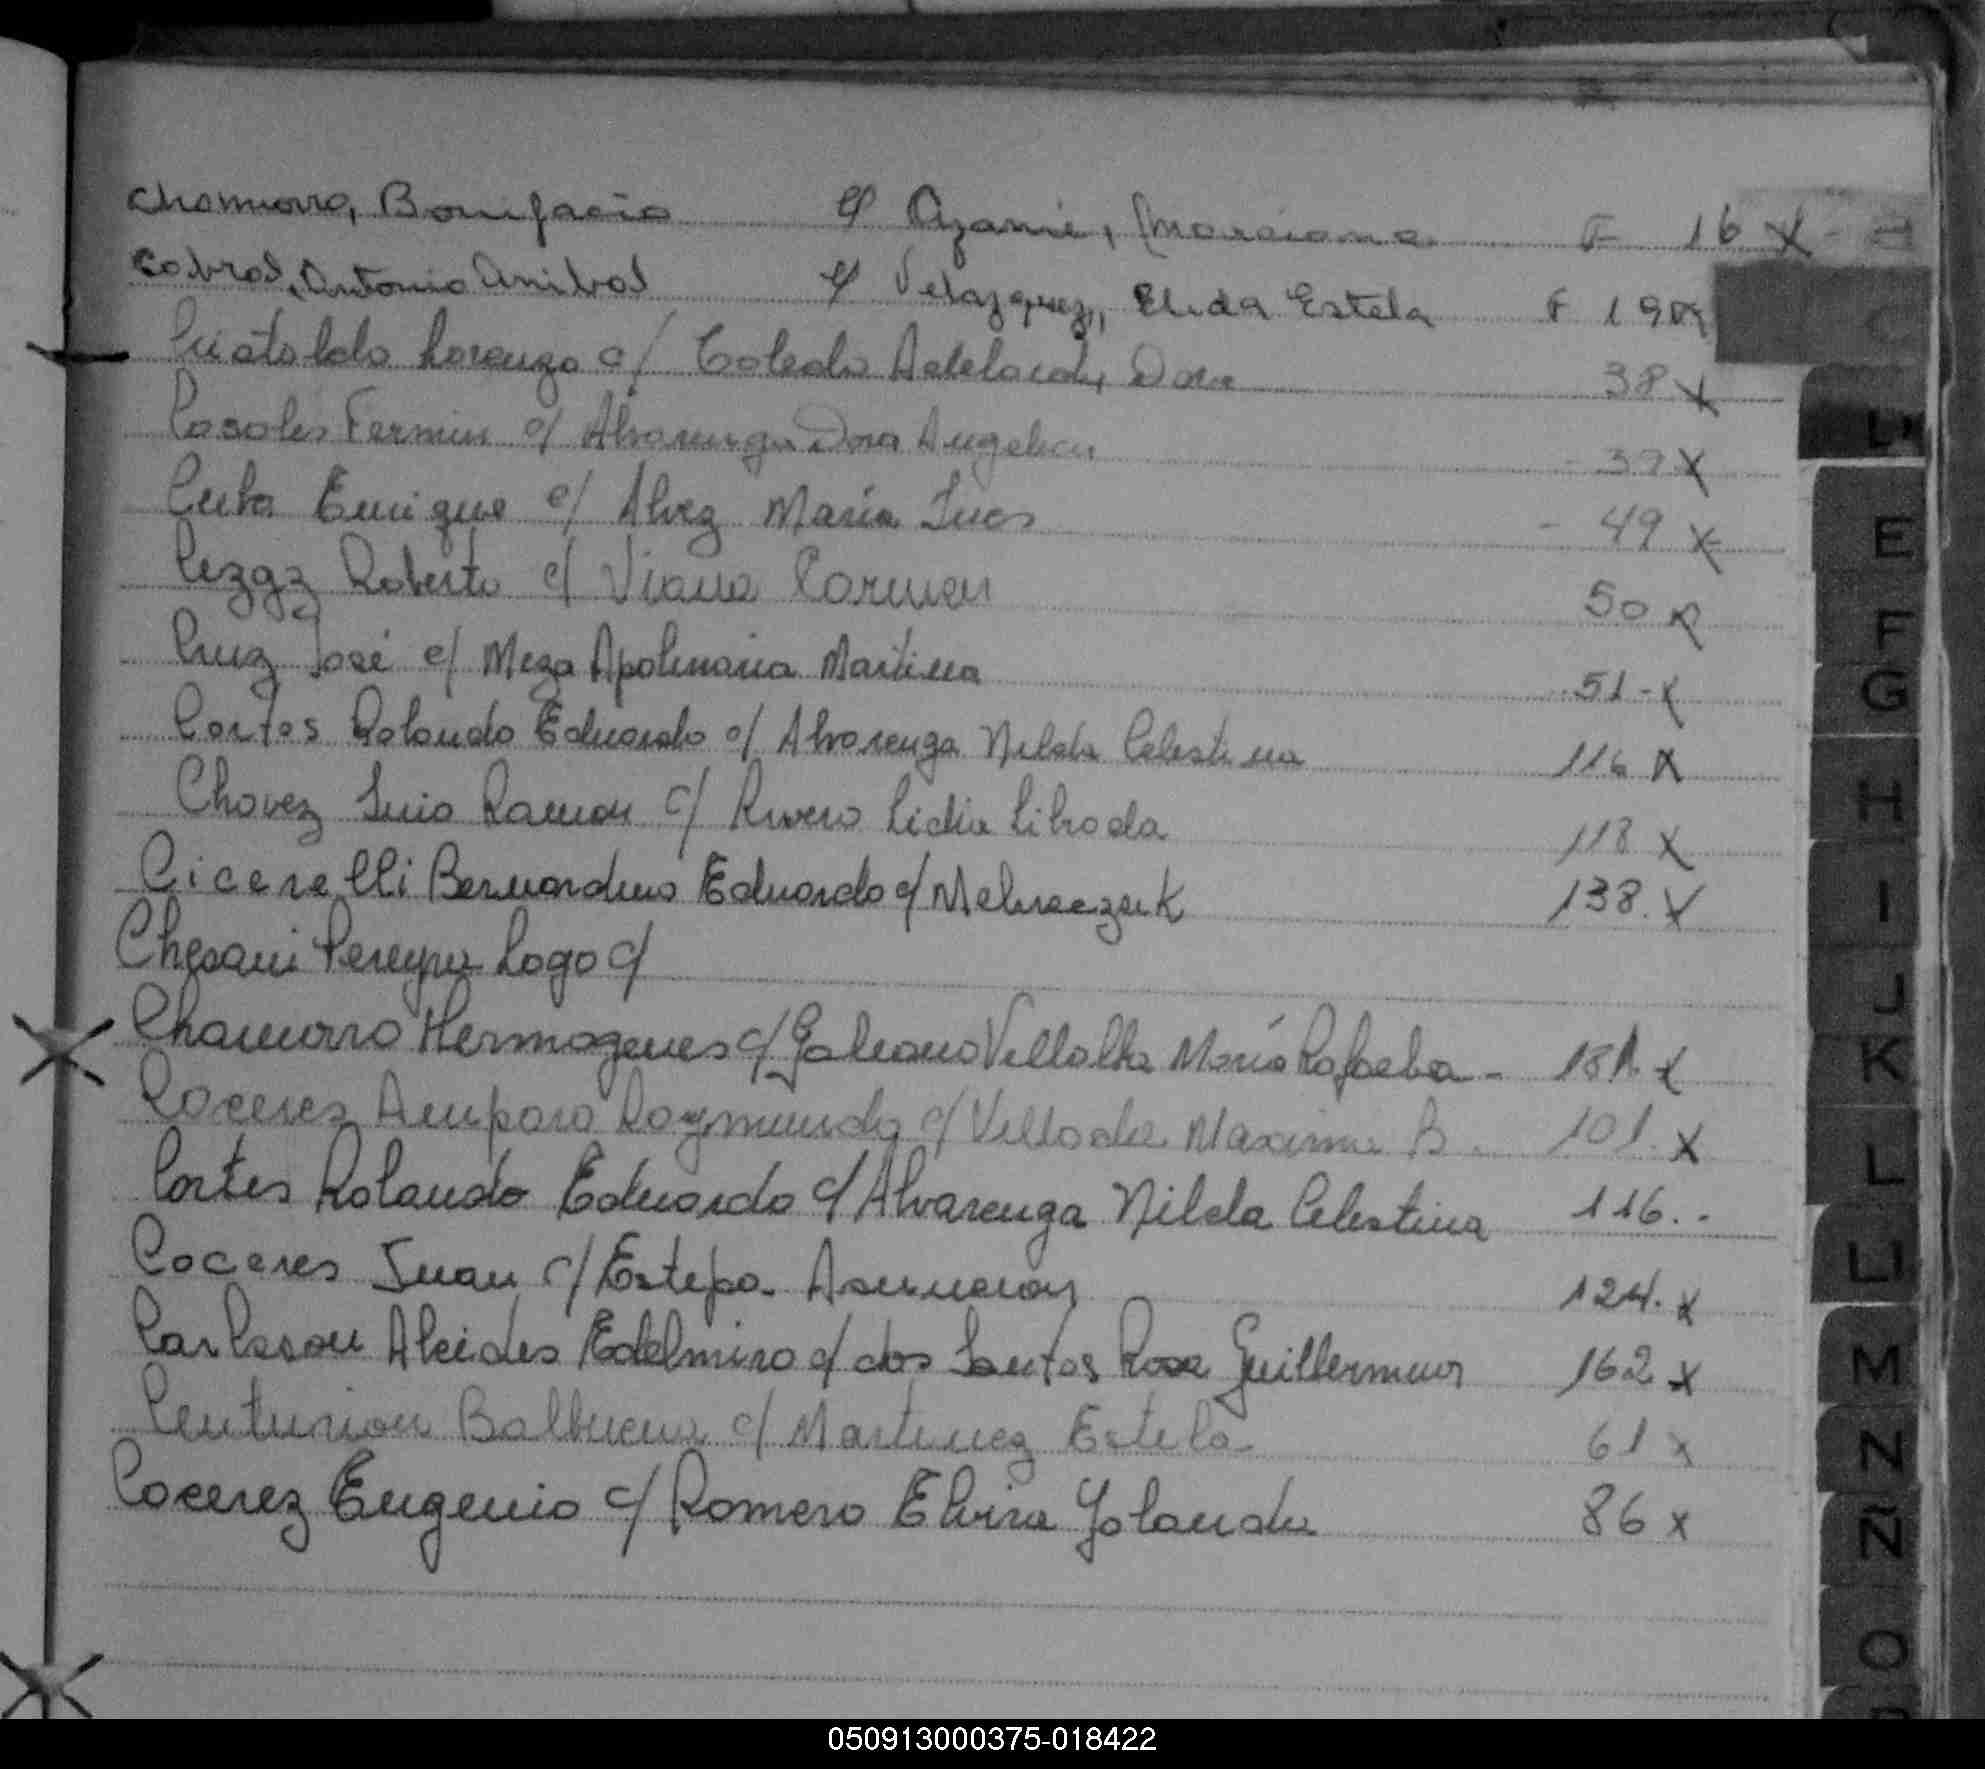 Chamorro, Bonifacio c/ Azamé, Marciana F 16 X
Cabral, Antonio Anibal c/ Velazquez, Elida Estela F 19 X
Lorenzo c/ Toledo Dora 38 X
Casales Fermin c/ Alvarenga Dora Angelica 39 X
Enrique c/ Alvez María Ines - 49 X
Roberto c/ Viana Carmen 50 X
Cruz José c/ Meza Apolinaria Martina 51 - X
Cortes Rolando Eduardo c/ Alvarenga Nilda Celestina 116 X
Chavez Luis Ramon c/ Rivero Lidia Librada 118 X
Cicerelli Bernardino Eduardo c/ 138. X
Chesani Pereyra Lago c/
Chamorro Hermogenes c/ Galeano Villalba María Rafaela - 181. X
Caceres Amparo Raymundo c/ Maxima B. 101. X
Cortes Rolando Eduardo c/ Alvarenga Nilda Celestina 116..
Caceres Juan c/ Estepa Asuncion 124. X
Carlsson Alcides Edelmiro c/ dos Santos Rosa Guillermina 162 X
Centurion Balbuena c/ Martinez Estela 61 X
Cocerez Eugenio c/ Romero Elvira Yolanda 86 X
C
D
E
F
G
H
I
J
K
L
LL
M
N
Ñ
O
050913000375-018422